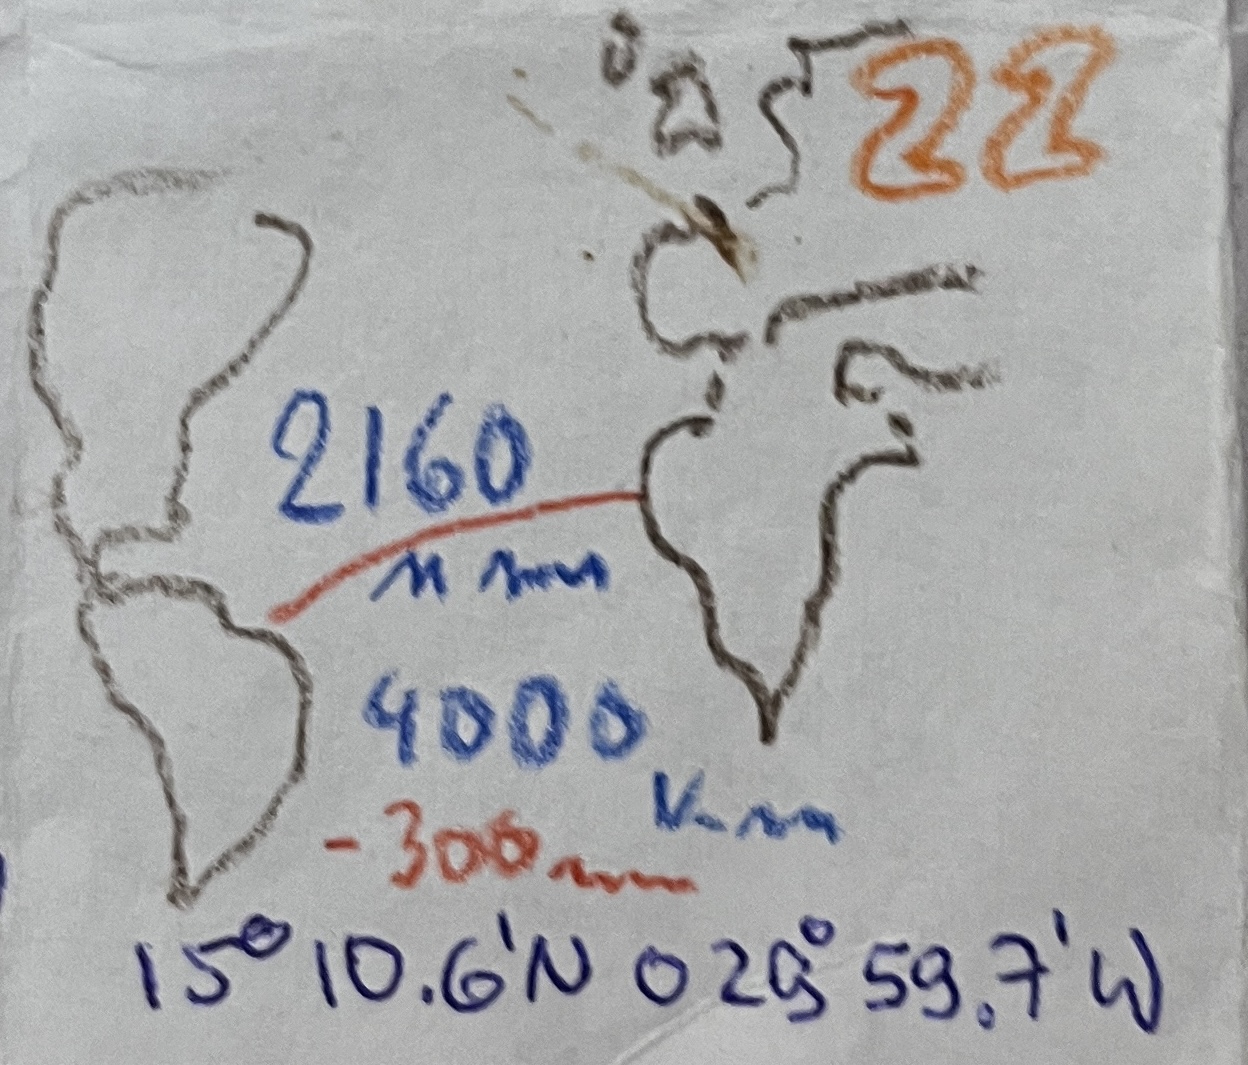 22
2160
4000
-300
15° 10.6'N 029° 59.7'W